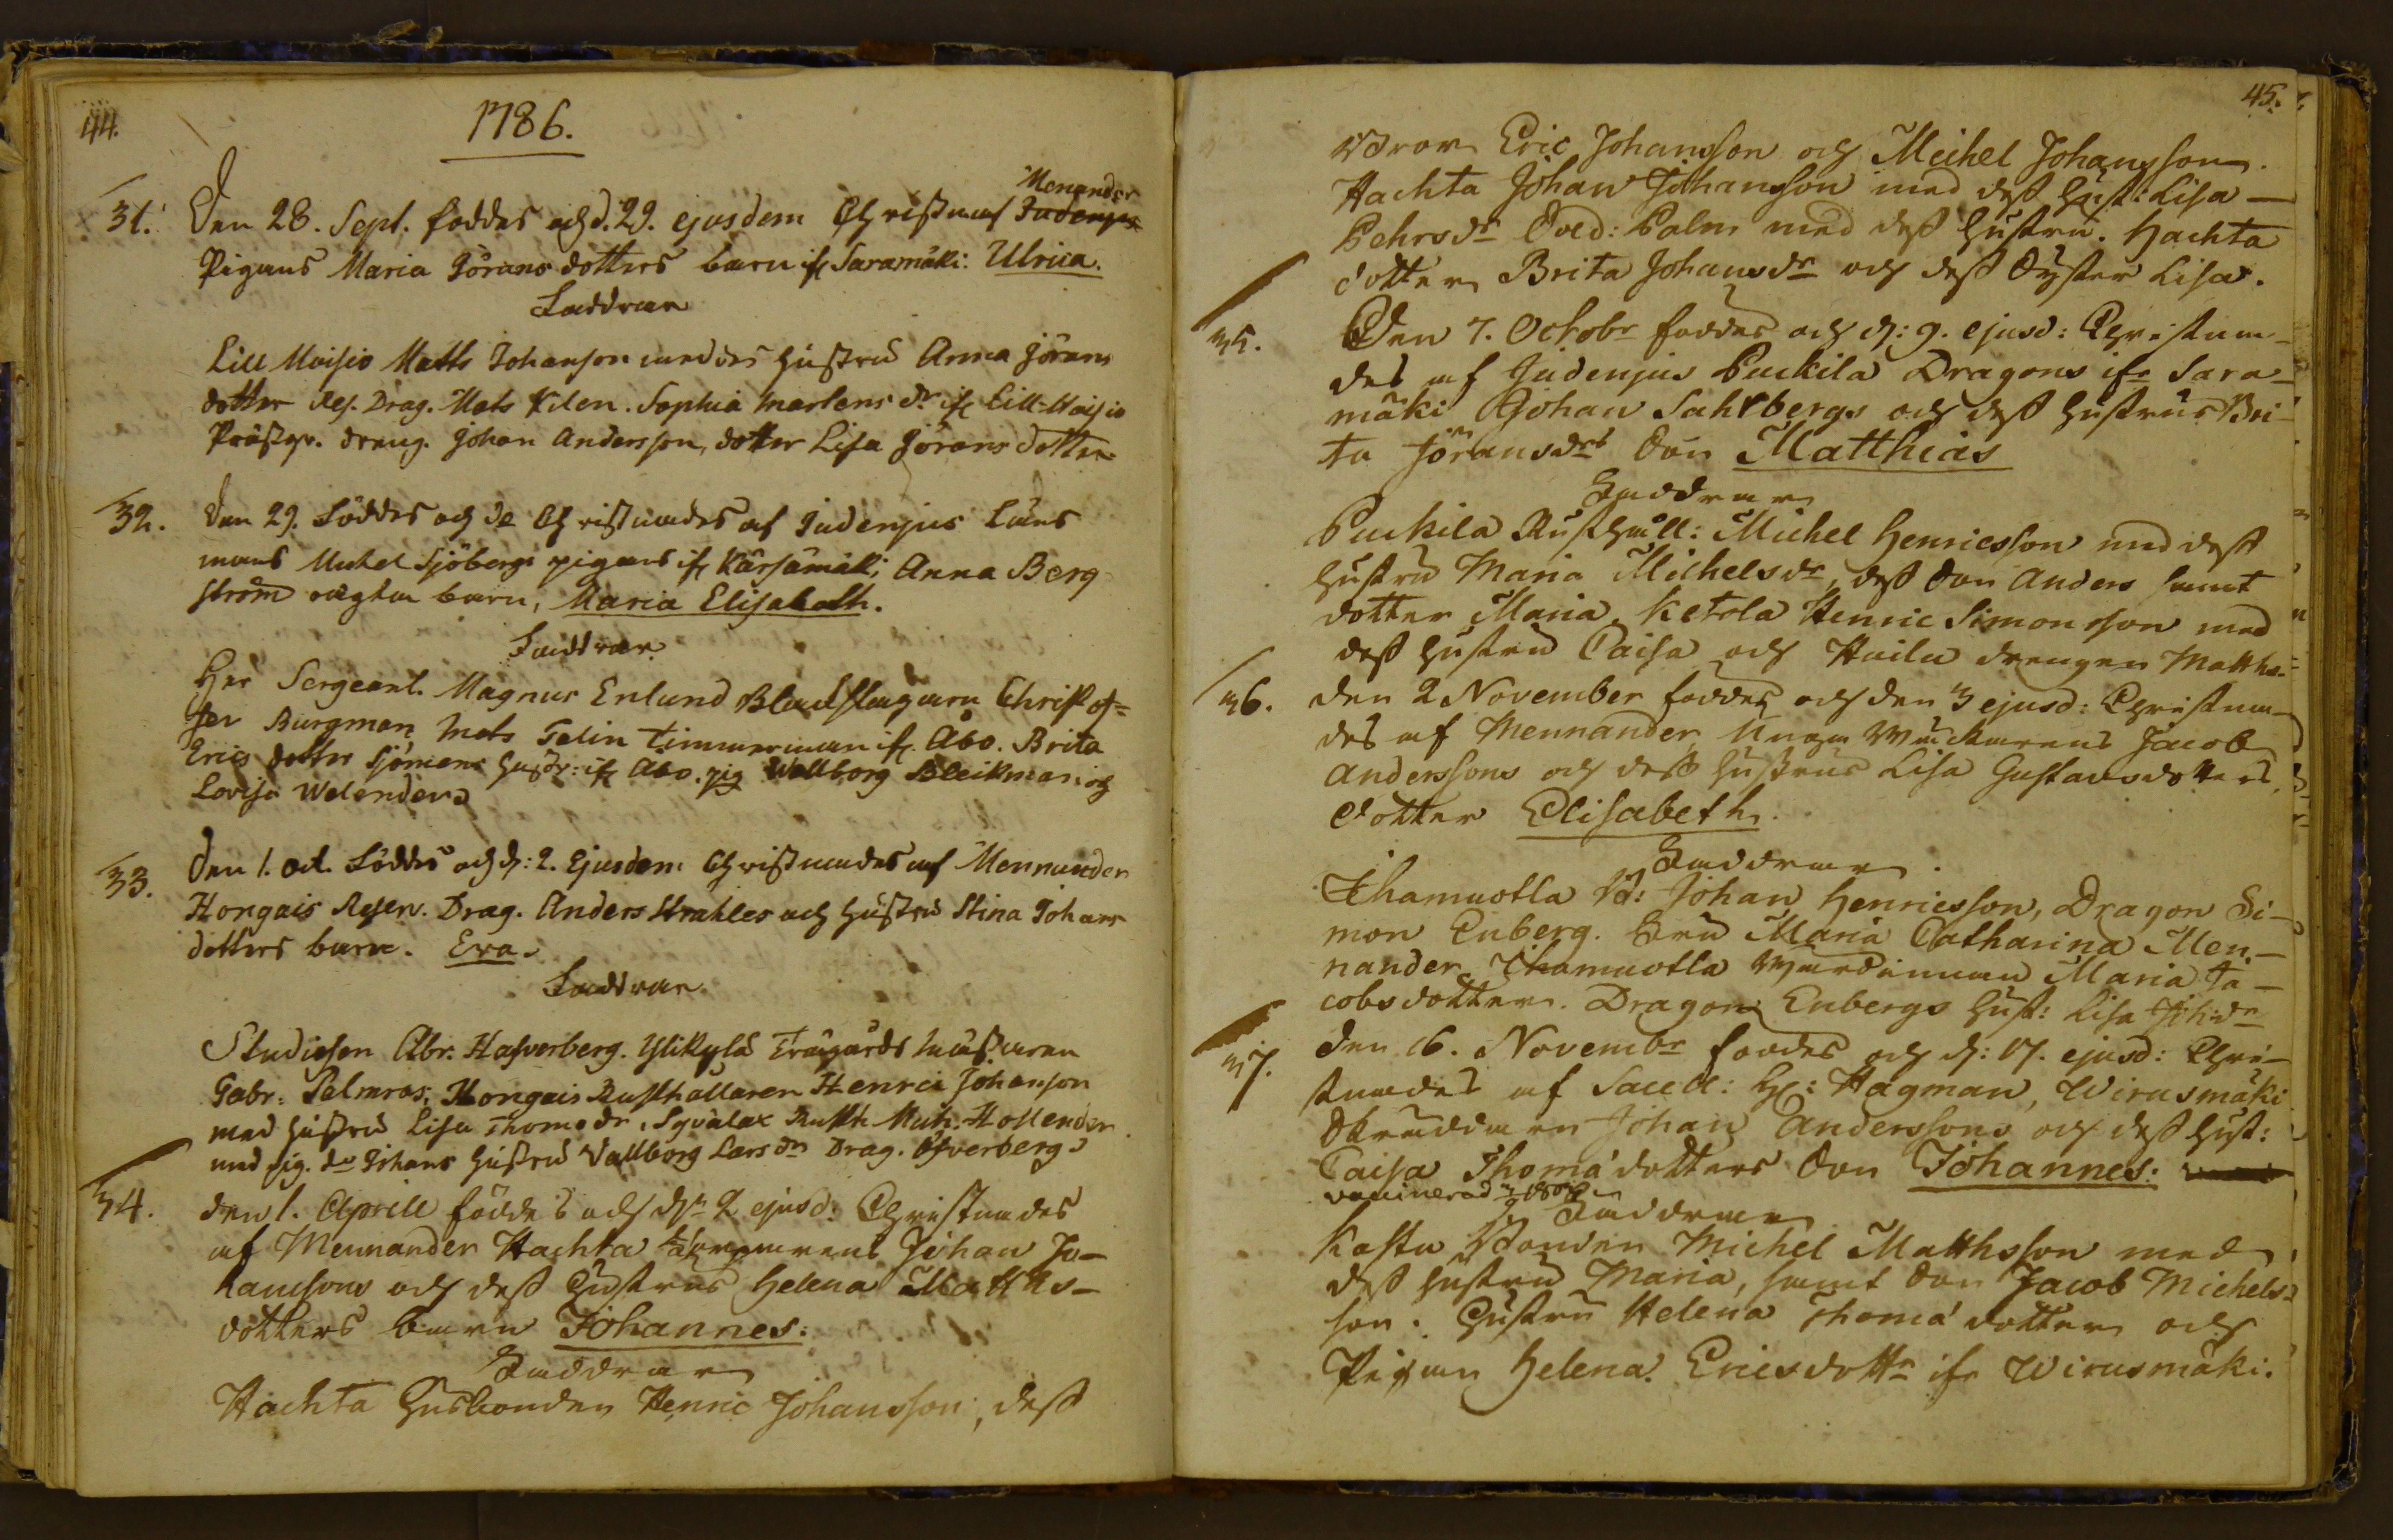 44.
1786.
Menander
31. Den 28. Sept. föddes och d. 29. ejusdem Christnas af Judenjus
Pigans Maria Jörans dotters barn ifr Saramäki: Ulrica.
Faddrar
Lill Moisio Matts Johanson med des hustru Anna Jörans
dotter Res. Drag. Mats Kilen. Sophia Martens dr ifr Lill-Moisio
Prästgr. dreng. Johan Andersson, dotter Lisa Jörans dotter
32. Den 29. Föddes och de Christnades af Judenjus Läns
mans Michel Sjöbergs pigans ifr Kärsämäki Anna Berg
ström oägta barn, Maria Elisabeth.
Faddrar
Her Sergeant. Magnus Enlund Bleckslagaren Christof=
fer Burgman Mats Telin Timmerman ifr. Åbo. Brita
Erics dotter Sjömans hustr: ifr Åbo. pig Wallborg Bleikman och
Lovisa Welander
33. Den 1. oct. Föddes och d: 2. Ejusdem Christnades af Mennander
Hongais Reserv. Drag. Anders Strahles och hustru Stina Johans
dotters barn. Eva.
Faddrar
Studiosen Abr. Hafverberg. Ylikylä Trägårds mästaren
Gabr. Palmros, Hongais Rusthållaren Henric Johanson
med hustru Lisa Thome dr, Syvälax Rusth. Mich. Hollender
med pig. dr Johans hustru Vallborg Lars dr Drag. Öfverberg
34. den 1. Aprill föddes och dn 2 ejusd: Christnades
af Mennander Hachta Johan Jo-
hansons och dess hustrus Helena Matths-
dotters barn Johannes:
Faddrar
Hachta Husbonden Henric Johansson, dess
45.
Broder Eric Johansson och Michel Johansson.
Hachta Johan Johansson med dess hust: Lisa
Pehrsdr Sold: Palm med dess hustru. Hachta
dotter Brita Johansdr och dess Syster Lisa.
35. Den 7. Octobr föddes och d: 9. ejusd: Christna-
des af Judenjus Puckila Dragons ifr Sara-
mäki Johan Sahlbergs och dess hustrus Bri-
ta Jöransdrs Son Matthias
Faddrar
Puckila Rusthåll: Michel Henricsson med dess
hustru Maria Michelsdr, dess Son Anders samt
dotter Maria, Ketola Henric Simonsson med
dess hustru Caisa och Huila drengen Matths
36. den 2 November föddes och den 3 ejusd: Christna-
des af Mennander Jacob
Anderssons och dess hustrus Lisa Gustavsdotters
dotter Elisabeth.
Faddrar
Thamuotla Johan Henricsson, Dragon Si-
mon Enberg. Fru Maria Catharina Men-
nander Thamuotla Wärdinnan Maria Ja-
cobsdotter. Dragon Enbergs hust: Lisa Joh:dr
37. den 16. Novembr föddes och d: 17. ejusd: Chri-
stnades af Sacell: Hr: Hagman, Wirusmäki
Skräddaren Johan Anderssons och dess hust:
Caisa Thomä dotters Son Johannes:
Faddrar
Kastu Bonden Michel Matthsson med
dess hustru Maria, samt Son Jacob Michels-
son. Hustru Helena Thomä dotter och
Pigan Helena Ericsdottr ifr Wirusmäki.